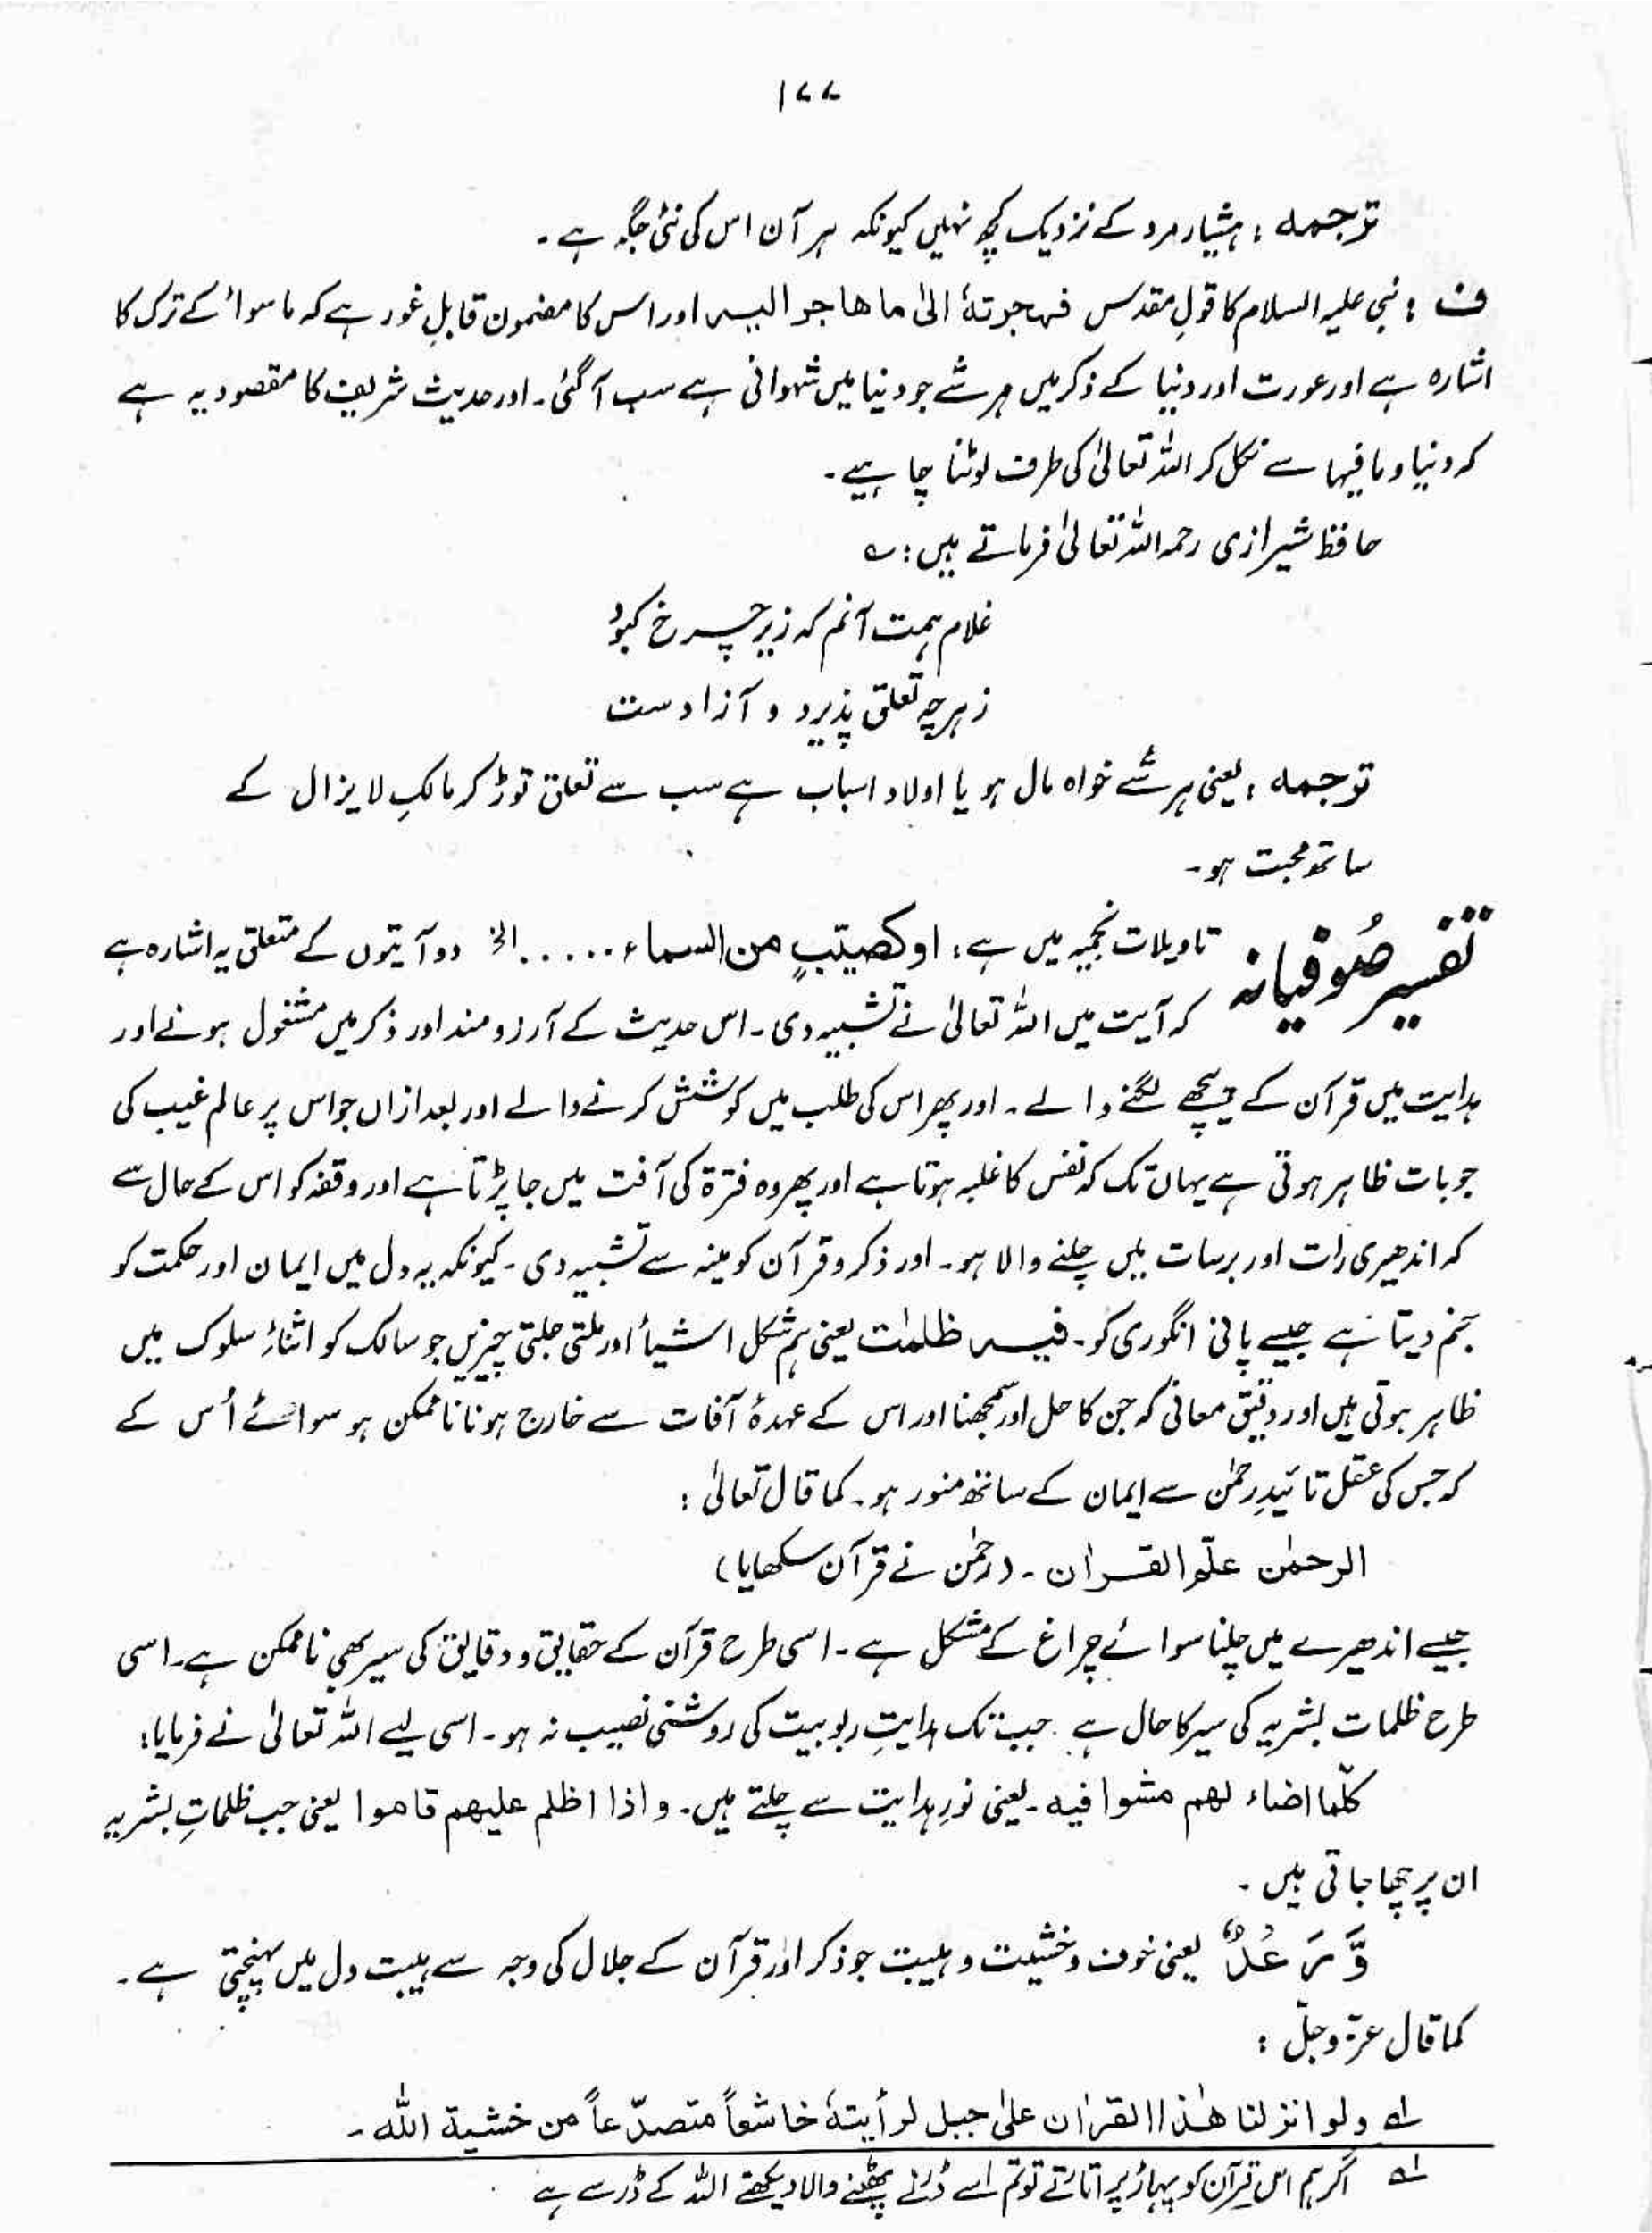 ۱۷۷
ترجمہ : ہشیار مرد کے نزدیک کچھ نہیں کیونکہ ہر آن اس کی نئی جگہ ہے۔
ف : نبی علیہ السلام کا قولِ مقدس فہجرتہٗ الیٰ ما ھاجر الیہ اور اس کا مضمون قابلِ غور ہے کہ ماسوا کے ترک کا
اشارہ ہے اور عورت اور دنیا کے ذکر میں ہر شے جو دنیا میں شہوانی ہے سب آ گئی۔ اور حدیث شریف کا مقصود یہ ہے
کہ دنیا و مافیہا سے نکل کر اللہ تعالیٰ کی طرف لوٹنا چاہیے۔
حافظ شیرازی رحمہ اللہ تعالیٰ فرماتے ہیں : ؎
غلام ہمت آنم کہ زیر چرخ کبود
زہرچہ تعلق پذیرد و آزادست
ترجمہ : یعنی ہر شے خواہ مال ہو یا اولاد اسباب ہے سب سے تعلق توڑ کر مالکِ لایزال کے
ساتھ محبت ہو۔
تفسیر صُوفیانہ تاویلات نجمیہ میں ہے : اوکصیّبٍ من السماء ..... الخ دو آیتوں کے متعلق یہ اشارہ ہے
کہ آیت میں اللہ تعالیٰ نے تشبیہ دی۔ اس حدیث کے آرزومند اور ذکر میں مشغول ہونے اور
ہدایت میں قرآن کے پیچھے لگنے والے۔ اور پھر اس کی طلب میں کوشش کرنے والے اور بعد ازاں جو اس پر عالم غیب کی
جو بات ظاہر ہوتی ہے یہاں تک کہ نفس کا غلبہ ہوتا ہے اور پھر وہ فترۃ کی آفت میں جا پڑتا ہے اور وقفہ کو اس کے حال سے
کہ اندھیری رات اور برسات میں چلنے والا ہو۔ اور ذکر و قرآن کو مینہ سے تشبیہ دی۔ کیونکہ یہ دل میں ایمان اور حکمت کو
جنم دیتا ہے جیسے پانی انگوری کو۔ فیہ ظلمٰت یعنی ہم شکل اشیأ اور ملتی جلتی چیزیں جو سالک کو اثنائِ سلوک میں
ظاہر ہوتی ہیں اور دقیق معانی کہ جن کا حل اور سمجھنا اور اس کے عہدۂ آفات سے خارج ہونا ناممکن ہو سوائے اُس کے
کہ جس کی عقل تائیدِ رحمٰن سے ایمان کے ساتھ منور ہو۔ کما قال تعالیٰ :
الرحمٰن علّم القراٰن ۔ (رحمٰن نے قرآن سکھایا)
جیسے اندھیرے میں چلنا سوائے چراغ کے مشکل ہے۔ اسی طرح قرآن کے حقایق و دقایق کی سیر بھی ناممکن ہے۔ اسی
طرح ظلمات بشریہ کی سیر کا حال ہے۔ جب تک ہدایتِ ربوبیت کی روشنی نصیب نہ ہو۔ اسی لیے اللہ تعالیٰ نے فرمایا :
کلّما اضاء لھم مشوا فیہ ۔ یعنی نورِ ہدایت سے چلتے ہیں۔ و اذا اظلم علیھم قاموا یعنی جب ظلماتِ بشریہ
ان پر چھا جاتی ہیں۔
وَّ رَعْدٌ یعنی خوف و خشیت و ہیبت جو ذکر اور قرآن کے جلال کی وجہ سے ہیبت دل میں پہنچتی ہے۔
کما قال عزّ و جلّ :
لہ ولو انزلنا ھٰذا القراٰن علیٰ جبل لرأیتہٗ خاشعاً متصدّعاً من خشیۃ اللہ ۔
لہ اگر ہم اس قرآن کو پہاڑ پر اتارتے تو تم اسے ڈرنے پھٹنے والا دیکھتے اللہ کے ڈر سے ہے